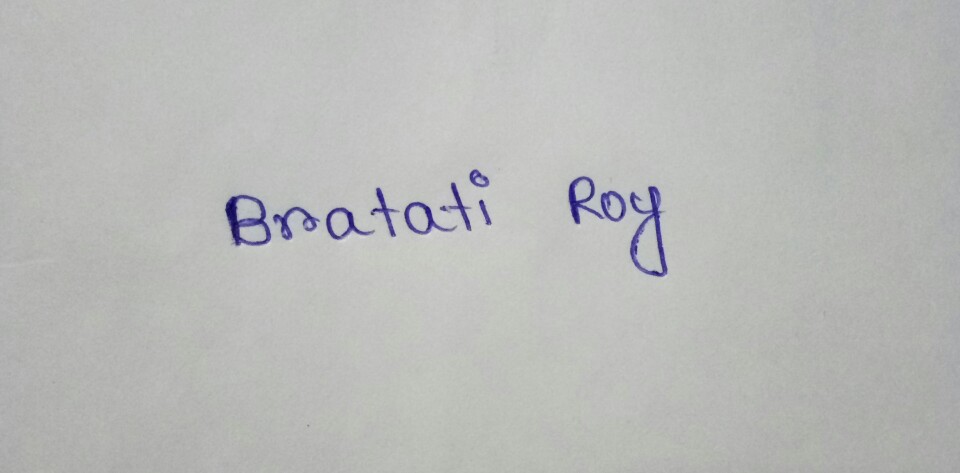 Bratati Roy